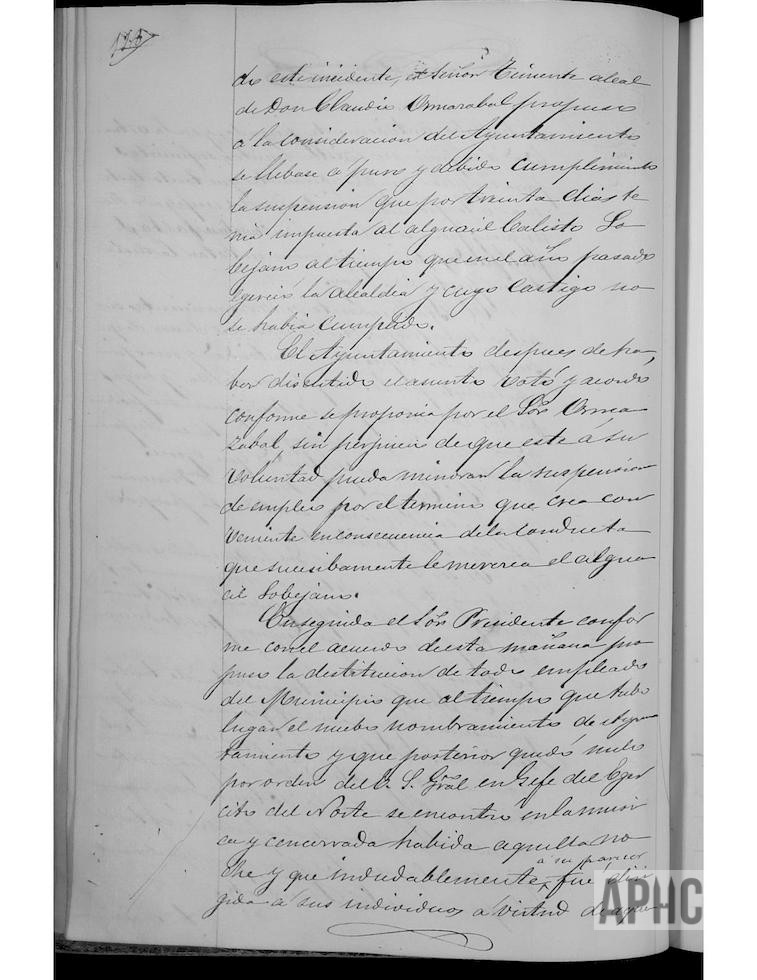 do este incidente, el Señor Teniente alcal
de Don Claudio Ormazabal propuso
a la consideracion del Ayuntamiento
se llebase a puro y debido cumplimiento
la suspension que por treinta dias te
nia impuesta al alguacil Calisto So
bejano al tiempo que en el año pasado
egerció la alcaldia y cuyo castigo no
se habia cumplido.
El Ayuntamiento despues de ha
ber discutido el asunto votó y acordo
conforme se proponia por el Sor Orma
zabal, sin perjuicio de que este á su
voluntad pueda minorar la suspension
de empleo por el termino que crea con
veniente en consecuencia de la conducta
que sucesibamente le merezca el algua
cil Sobejano.
Enseguida el Sor Presidente confor
me con el acuerdo de esta mañana pro
puso la destitucion de todo empleado
del Municipio que al tiempo que tubo
lugar el nuebo nombramiento de Ayun
tamiento y que posterior quedó nulo
por orden del E. S. Gral en Gefe del Eger
cito del Norte se encontró en la musi
ca y cencerrada habida aquella no
che y que indudablemente a su parecer fué diri
gida a sus individuos á virtud de aque
APHC